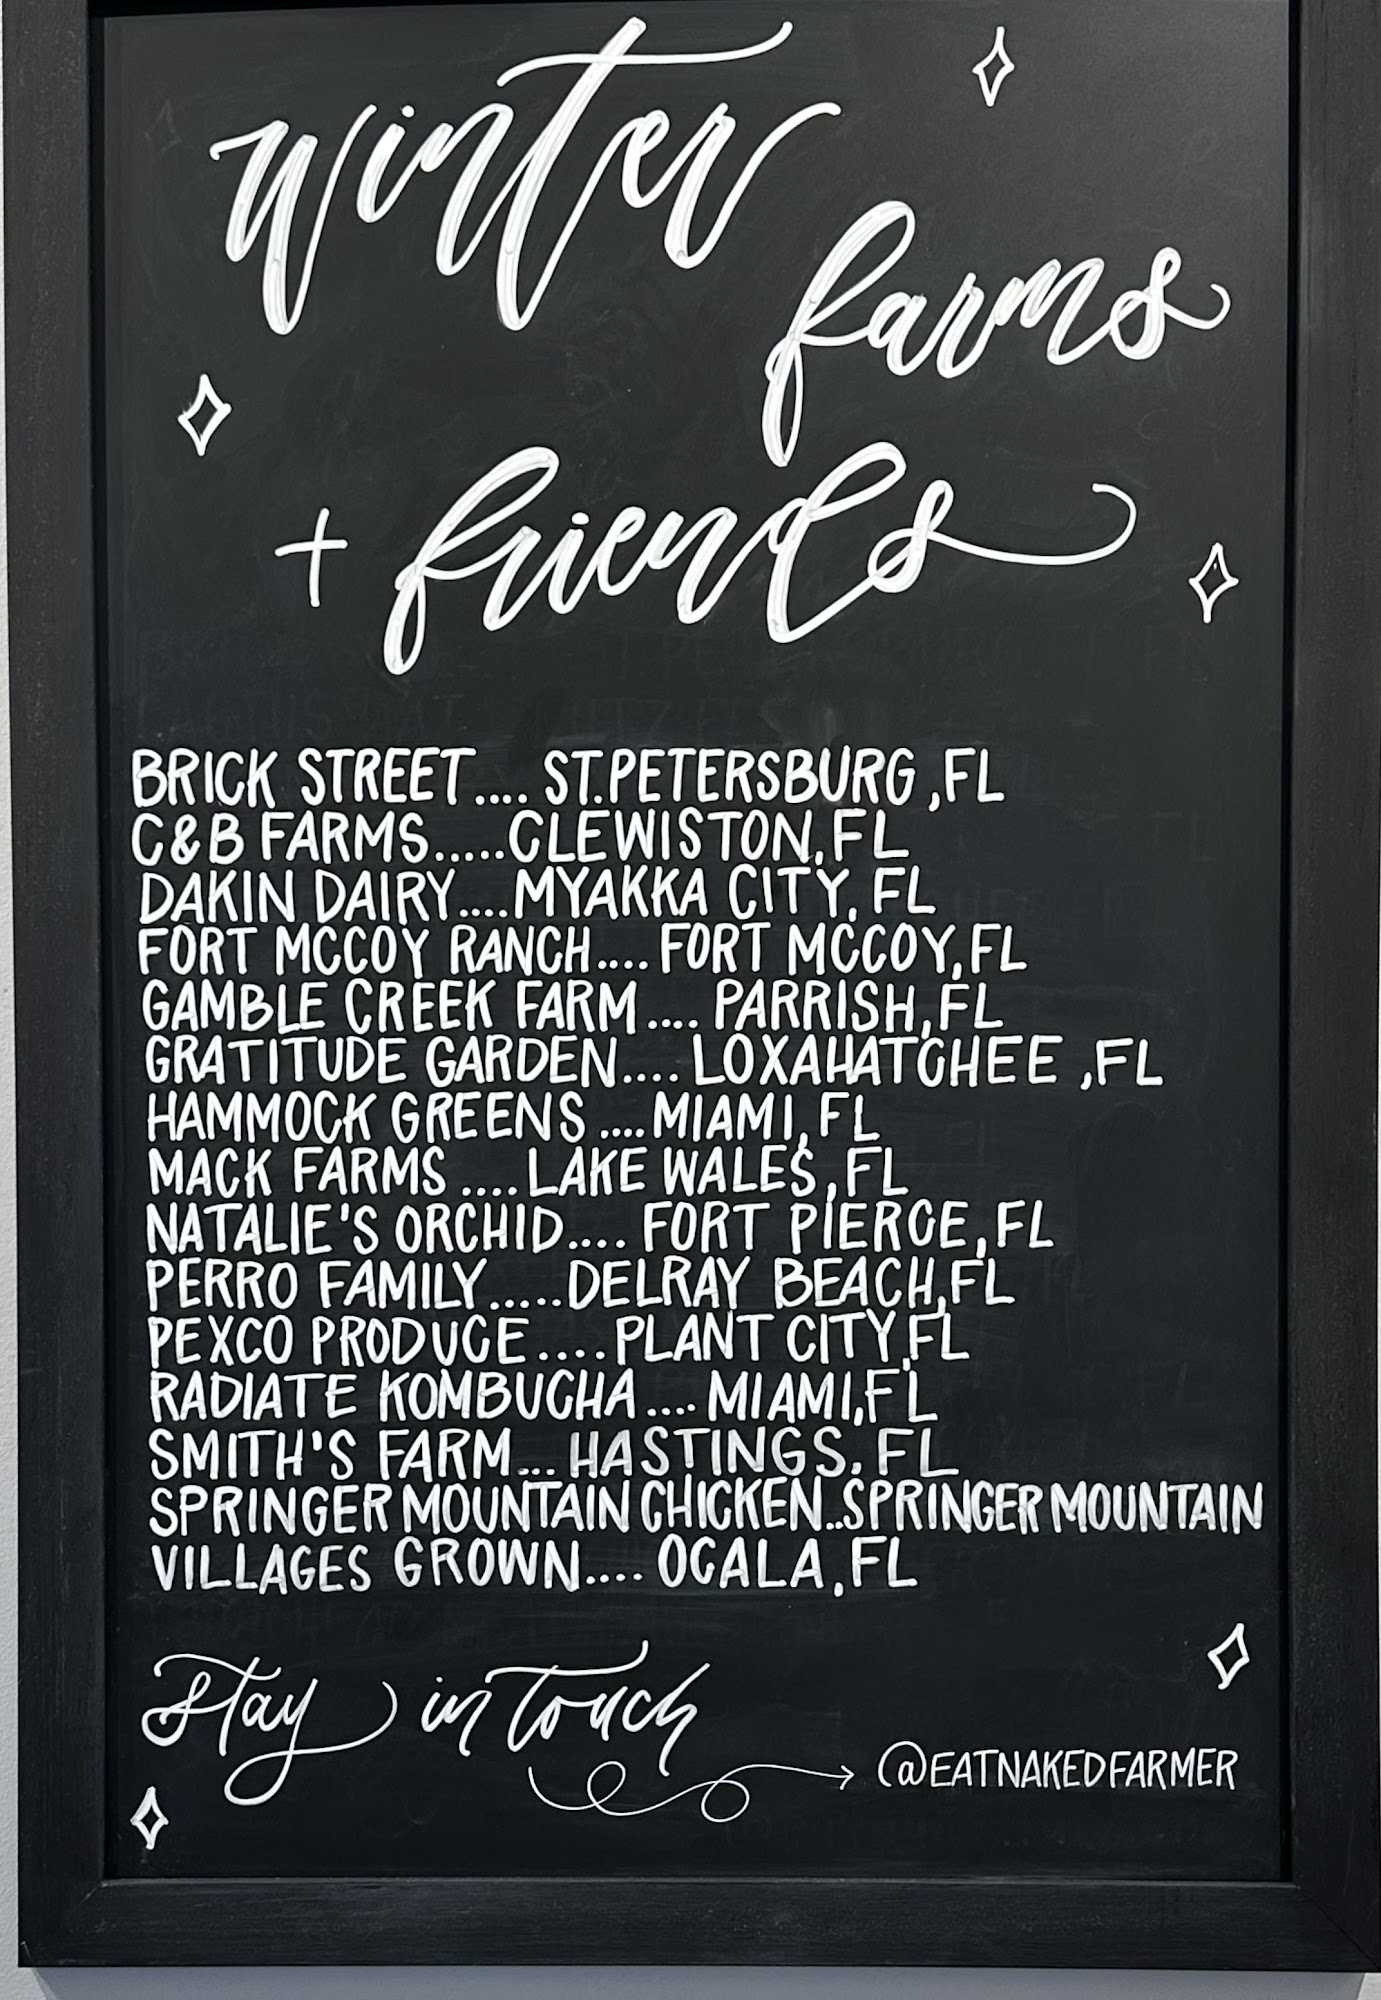 winter
farms
+ friends
BRICK STREET.... ST.PETERSBURG,FL
C&B FARMS.....CLEWISTON,FL
DAKIN DAIRY....MYAKKA CITY, FL
FORT MCCOY RANCH.... FORT MCCOY,FL
GAMBLE CREEK FARM.... PARRISH,FL
GRATITUDE GARDEN.... LOXAHATCHEE,FL
HAMMOCK GREENS....MIAMI,FL
MACK FARMS....LAKE WALES,FL
NATALIE'S ORCHID.... FORT PIERCE,FL
PERRO FAMILY.....DELRAY BEACH,FL
PEXCO PRODUCE....PLANT CITY,FL
RADIATE KOMBUCHA.... MIAMI,FL
SMITH'S FARM... HASTINGS, FL
SPRINGER MOUNTAIN CHICKEN..SPRINGER MOUNTAIN
VILLAGES GROWN.... OCALA,FL
stay in touch
@EATNAKEDFARMER